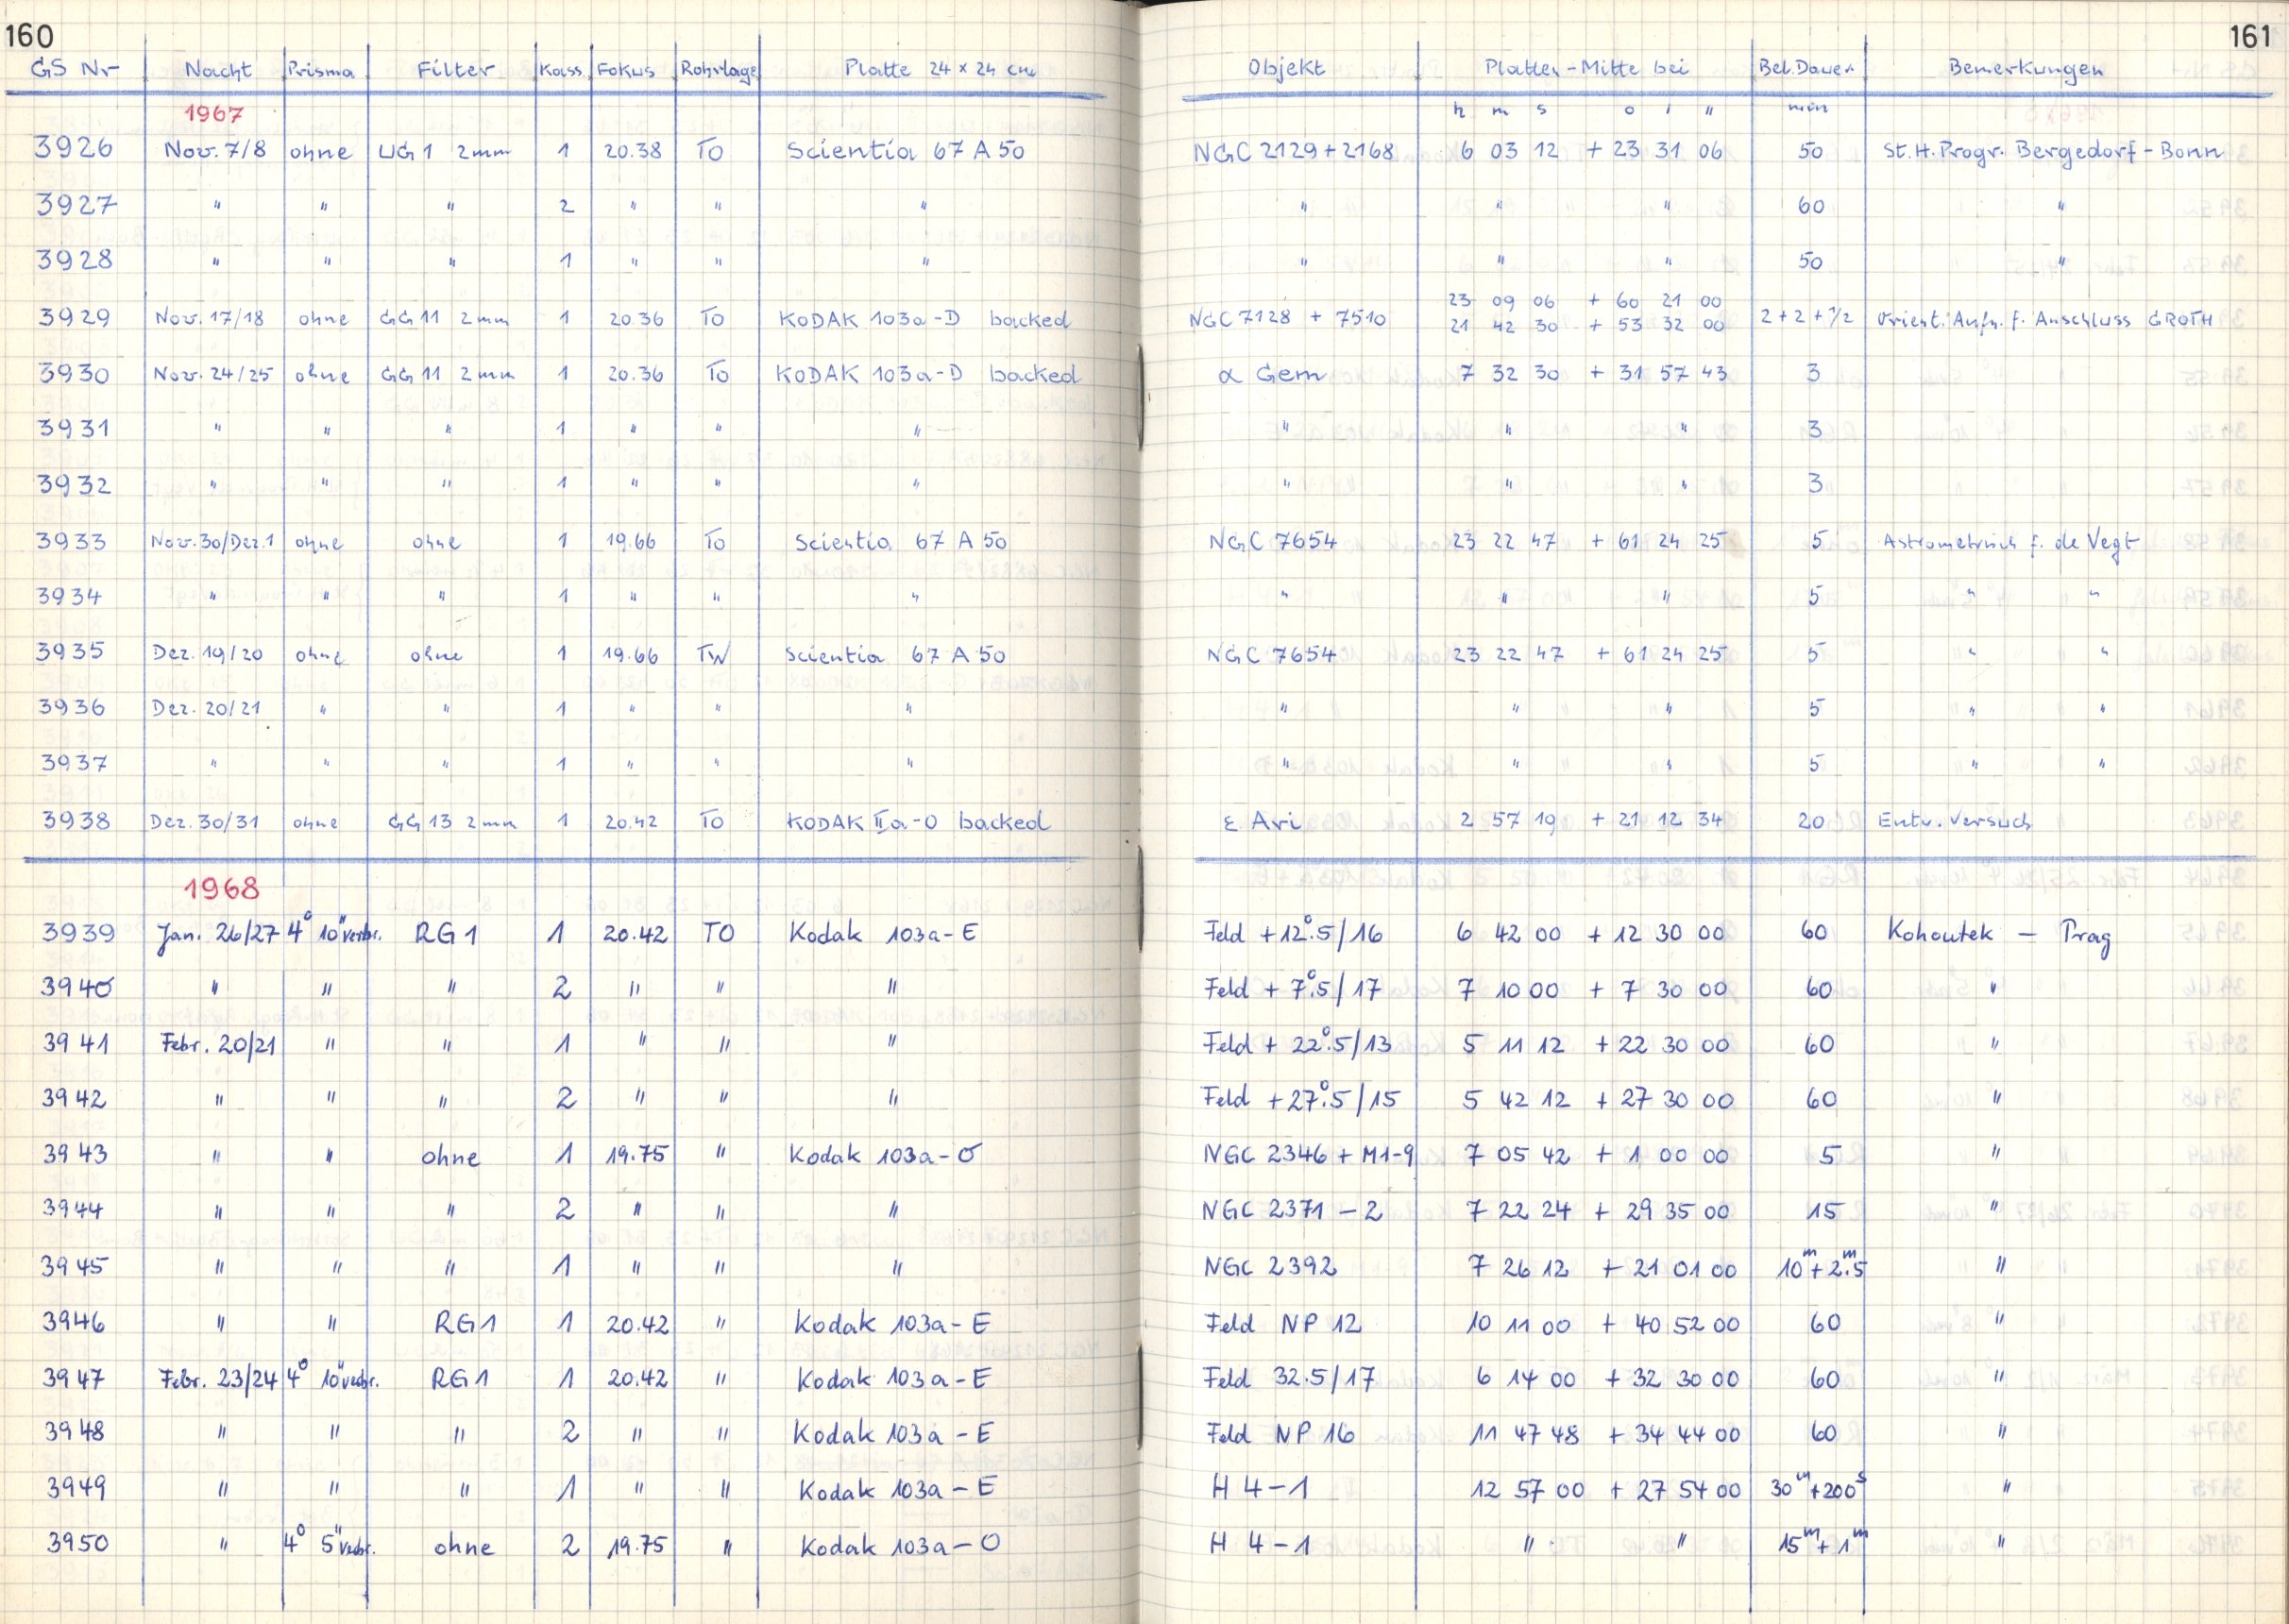 160
161
GS Nr Nacht Prisma Filter Kass Fokus Rohrlage Platte 24 x 24 cm Objekt Platten-Mitte bei Bel.Dauer Bemerkungen
1967 h m s o ' " min
3926 Nov. 7/8 ohne UG 1 2mm 1 20.38 TO Scientia 67 A 50 NGC 2129 + 2168 6 03 12 + 23 31 06 50 St.H.Progr. Bergedorf - Bonn
3927 " " " 2 " " " " " " 60 "
3928 " " " 1 " " " " " " 50 "
3929 Nov. 17/18 ohne GG 11 2mm 1 20.36 TO KODAK 103a-D backed NGC 7128 + 7510 23 09 06 + 60 21 00
21 42 30 + 53 32 00 2 + 2 + 1/2 Orient. Aufn. f. Anschluss GROTH
3930 Nov. 24/25 ohne GG 11 2mm 1 20.36 TO KODAK 103a-D backed α Gem 7 32 30 + 31 57 43 3
3931 " " " 1 " " " " " " 3
3932 " " " 1 " " " " " " 3
3933 Nov. 30/Dez. 1 ohne ohne 1 19.66 TO Scientia 67 A 50 NGC 7654 23 22 47 + 61 24 25 5 Astrometrisch f. de Vegt
3934 " " " 1 " " " " " " 5 " "
3935 Dez. 19/20 ohne ohne 1 19.66 TW Scientia 67 A 50 NGC 7654 23 22 47 + 61 24 25 5 " "
3936 Dez. 20/21 " " 1 " " " " " " 5 " "
3937 " " " 1 " " " " " " 5 " "
3938 Dez. 30/31 ohne GG 13 2mm 1 20.42 TO KODAK IIa-O backed ε Ari 2 57 19 + 21 12 34 20 Entw. Versuch
1968
3939 Jan. 26/27 4° 10" verbr. RG 1 1 20.42 TO Kodak 103a-E Feld +12°.5/16 6 42 00 + 12 30 00 60 Kohoutek - Prag
3940 " " " 2 " " " Feld + 7°.5/17 7 10 00 + 7 30 00 60 "
3941 Febr. 20/21 " " 1 " " " Feld + 22°.5/13 5 11 12 + 22 30 00 60 "
3942 " " " 2 " " " Feld +27°.5/15 5 42 12 + 27 30 00 60 "
3943 " " ohne 1 19.75 " Kodak 103a-O NGC 2346 + M1-9 7 05 42 + 1 00 00 5 "
3944 " " " 2 " " " NGC 2371 - 2 7 22 24 + 29 35 00 15 "
3945 " " " 1 " " " NGC 2392 7 26 12 + 21 01 00 10m + 2m.5 "
3946 " " RG1 1 20.42 " Kodak 103a-E Feld NP 12 10 11 00 + 40 52 00 60 "
3947 Febr. 23/24 4° 10" verbr. RG1 1 20.42 " Kodak 103a-E Feld 32.5/17 6 14 00 + 32 30 00 60 "
3948 " " " 2 " " Kodak 103a-E Feld NP 16 11 47 48 + 34 44 00 60 "
3949 " " " 1 " " Kodak 103a-E H 4-1 12 57 00 + 27 54 00 30m + 200s "
3950 " 4° 5" verbr. ohne 2 19.75 " Kodak 103a-O H 4-1 " " 15m + 1m "